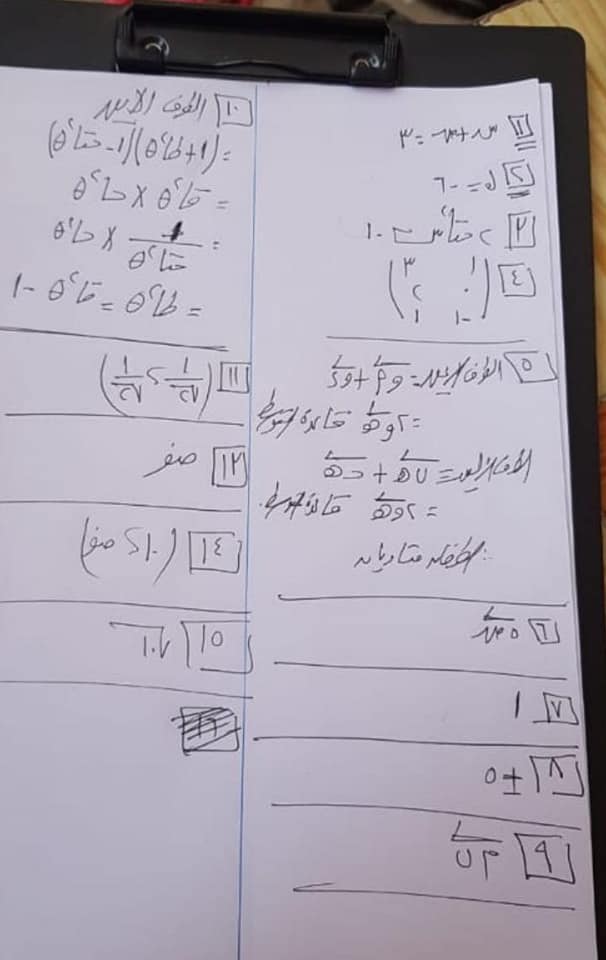 ١ س + ص = ٣
٢ ك = -٦
٣ ٢ حتا٢س - ١
٤
١ ٣
٠ ٢
-١ ١
٥ الطرف الأيمن = و م + و ء
= ٢ و هـ قاعدة المتوسط
الطرف الأيسر = و ب + و حـ
= ٢ و هـ قاعدة المتوسط
∴ الطرفان متساويان
٦ ٥ ص
٧ ١
٨ ± ٥
٩ م ن
١٠ الطرف الأيمن
= (١ + طا٢θ)(١ - حتا٢θ)
= قا٢θ × حا٢θ
= ١/حتا٢θ × حا٢θ
= طا٢θ = قا٢θ - ١
١١ (١/√٢ ، ١/√٢)
١٢ صفر
١٤ (١٠ ، صفر)
١٥